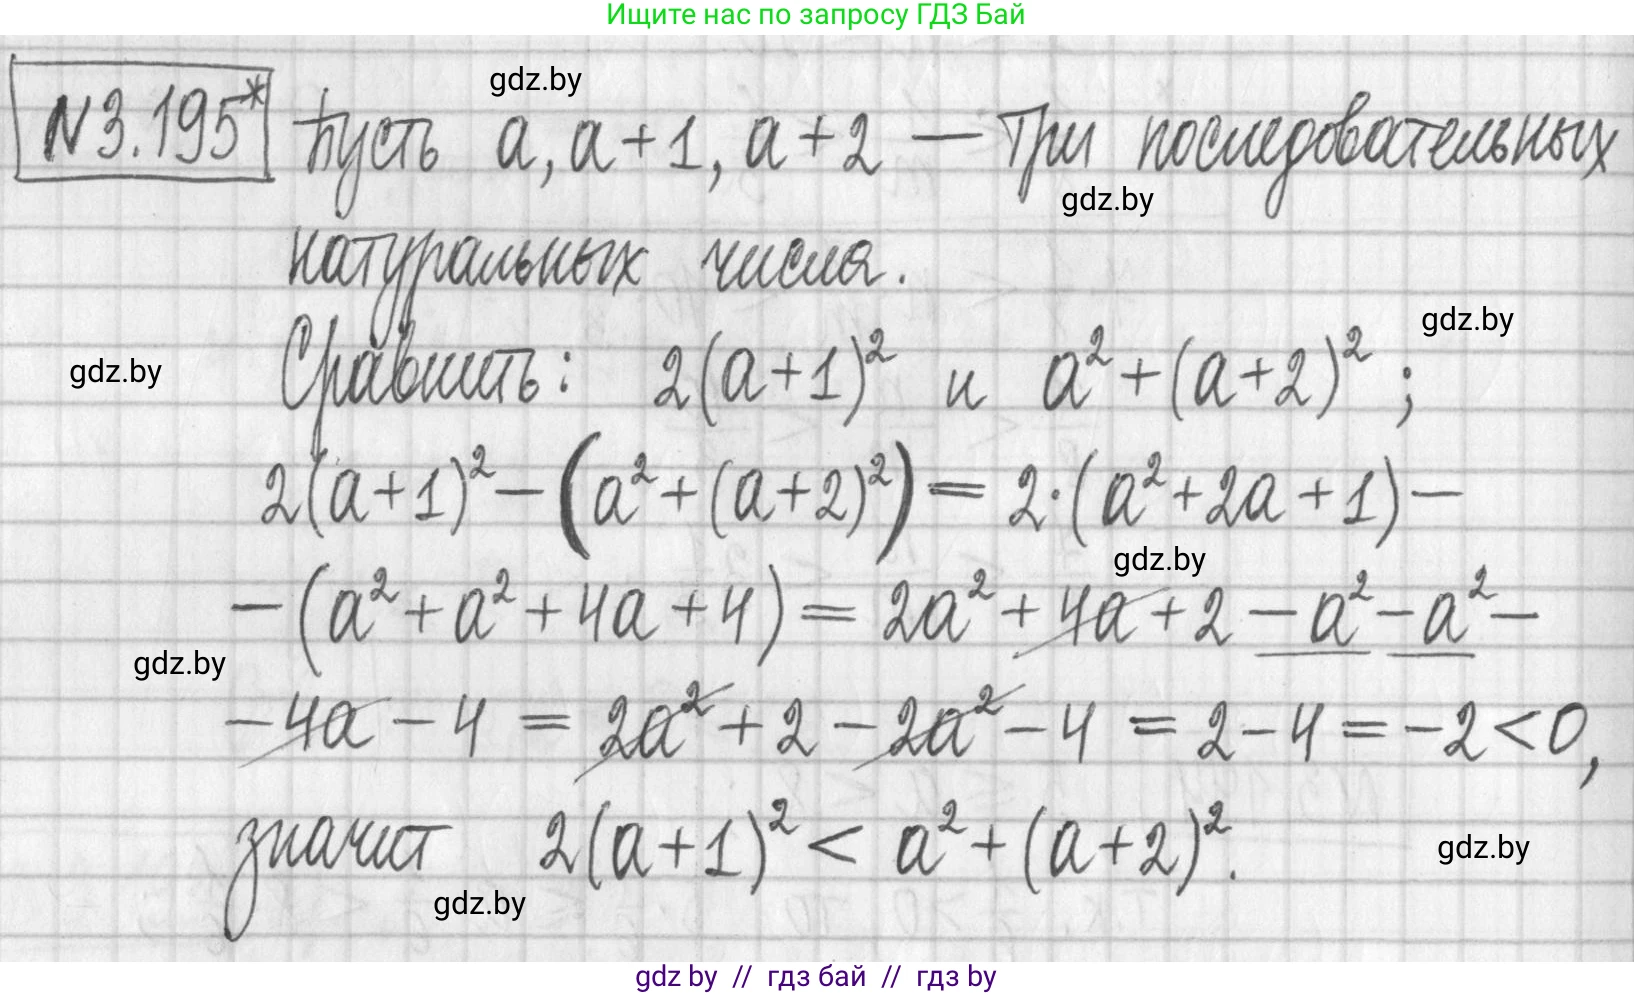 Ищите нас по запросу ГДЗ Бай
gdz.by
N3.195* Пусть a, a+1, a+2 — три последовательных
gdz.by
натуральных числа.
gdz.by
Сравнить: 2(a+1)² и a²+(a+2)²;
gdz.by
2(a+1)²−(a²+(a+2)²)=2·(a²+2a+1)−
gdz.by
−(a²+a²+4a+4)=2a²+4a+2−a²−a²−
gdz.by
−4a−4=2a²+2−2a²−4=2−4=−2<0,
значит 2(a+1)²<a²+(a+2)².
gdz.by
gdz.by
gdz by // гдз бай // гдз by